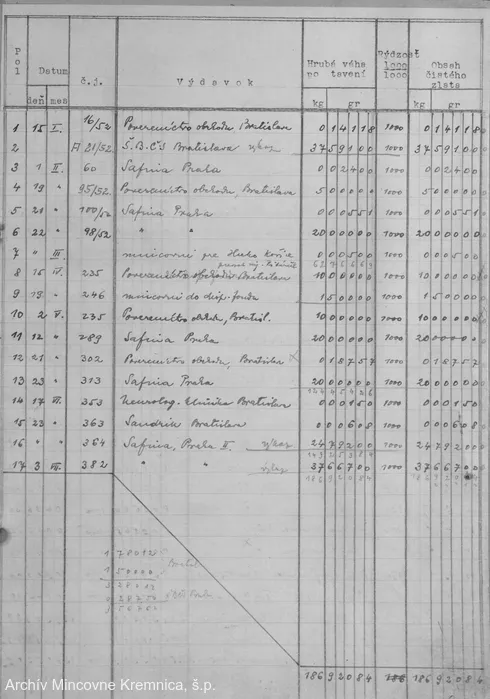 Pol Datum č.j. Výdavok Hrubá váha po tavení Rýdzosť 1000/1000 Obsah čistého zlata
deň mes kg gr kg gr
1 15 I. 16/52 Povereníctvo obchodu Bratislava 0 1 4 1 1 8 1000 0 1 4 1 1 8
2 A 21/52 Š.B.ČS Bratislava 37 5 9 1 0 0 1000 37 5 9 1 0 0
3 1 II. 60 Safina Praha 0 0 2 4 0 0 1000 0 0 2 4 0 0
4 19 " 95/52 Povereníctvo obchodu, Bratislava 5 0 0 0 0 0 1000 5 0 0 0 0 0
5 21 " 100/52 Safina Praha 0 0 0 5 5 1 1000 0 0 0 5 5 1
6 22 " 98/52 " " 20 0 0 0 0 0 1000 20 0 0 0 0 0
7 " III mincovni pre 0 0 0 5 0 0 1000 0 0 0 5 0 0
8 15 IV. 235 Povereníctvo obchodu Bratislava 10 0 0 0 0 0 1000 10 0 0 0 0 0
9 19 " 246 mincovni do 1 5 0 0 0 0 1000 1 5 0 0 0 0
10 2 V. 235 Povereníctvo obchodu, Bratisl. 10 0 0 0 0 0 1000 10 0 0 0 0 0
11 12 " 289 Safina Praha 20 0 0 0 0 0 1000 20 0 0 0 0 0
12 21 " 302 Povereníctvo obchodu, Bratislava 0 1 8 7 5 7 1000 0 1 8 7 5 7
13 23 " 313 Safina Praha 20 0 0 0 0 0 1000 20 0 0 0 0 0
14 17 VI. 353 Neurolog. klinika Bratislava 0 0 0 1 5 0 1000 0 0 0 1 5 0
15 23 " 363 Sandrik Bratislava 0 0 0 6 0 8 1000 0 0 0 6 0 8
16 " " 364 Safina, Praha II. 24 7 9 2 0 0 1000 24 7 9 2 0 0
17 3 VII. 382 " " 37 6 6 7 0 0 1000 37 6 6 7 0 0
186 9 2 0 8 4 186 9 2 0 8 4
186 9 2 0 8 4 186 9 2 0 8 4
Archív Mincovne Kremnica, š.p.